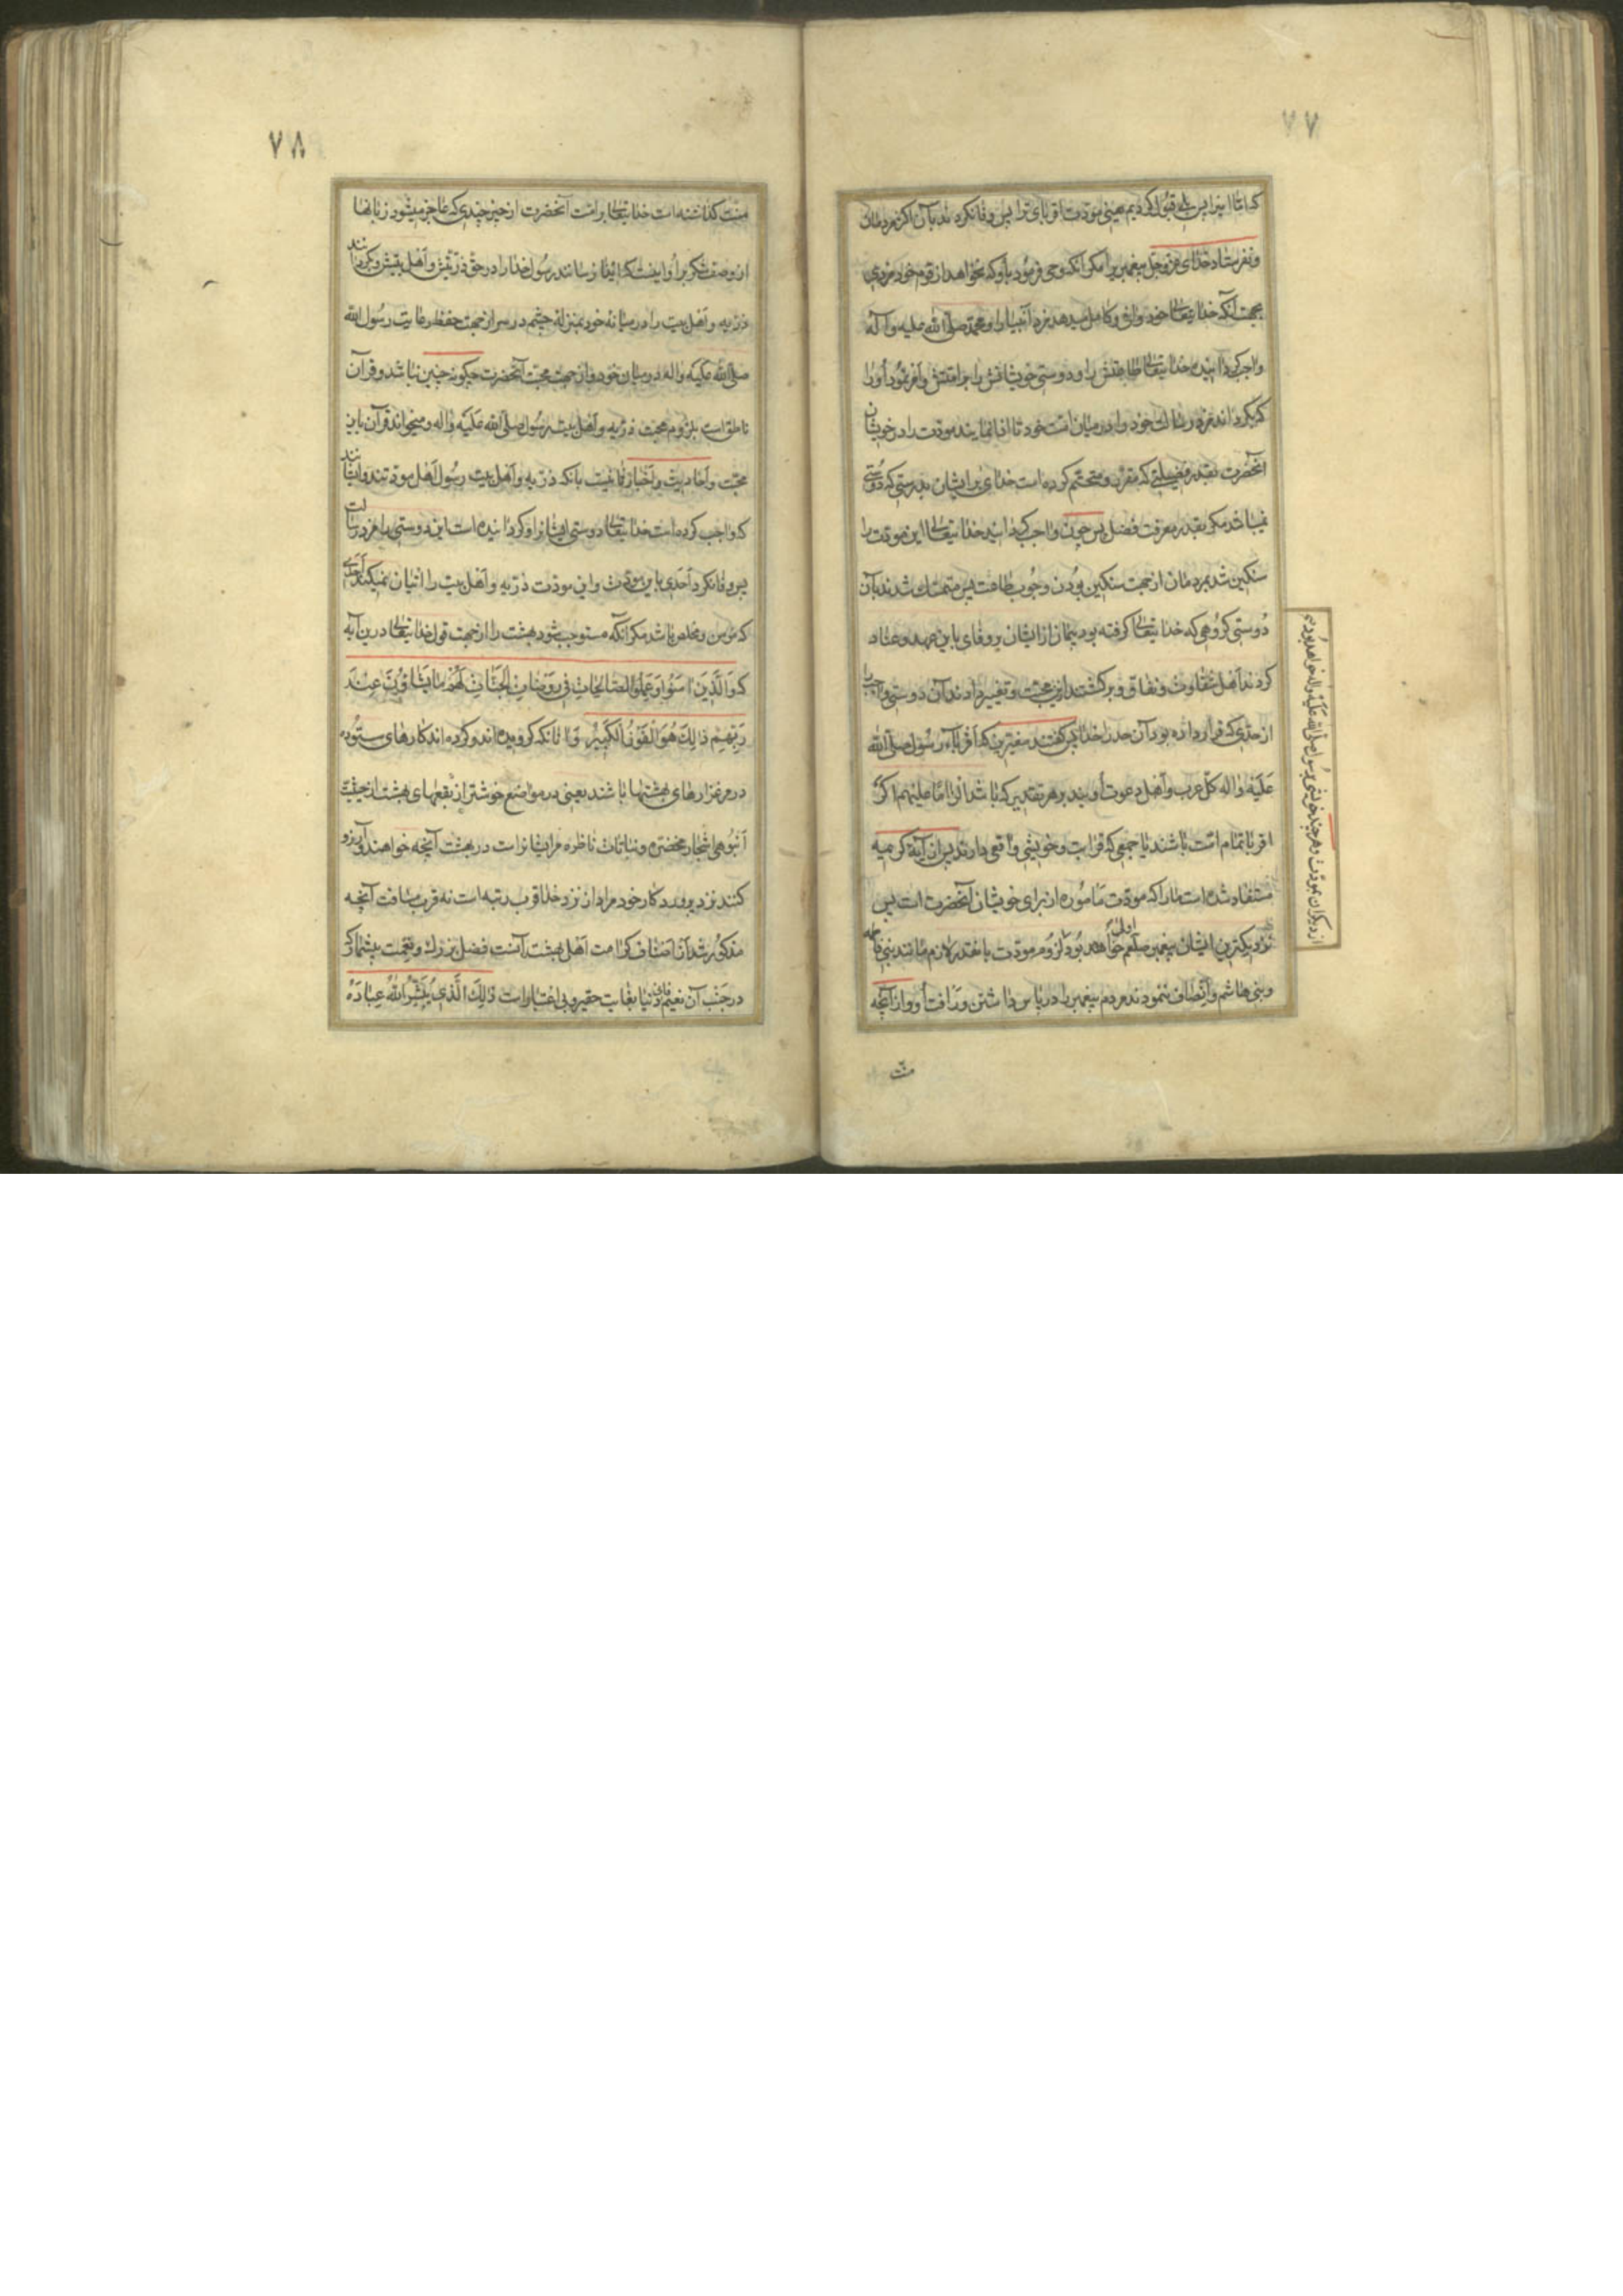 ۷۷
که اما اینرا پس بلی قبول کردیم یعنی مودت اقربای ترا پس وفا نکردند بآن اکثر مردمان
و نفرستاد خدای عزوجل پیغمبریرا مکر آنکه وحی فرمود باو که نخواهد از قوم خود مزدی
بجهت آنکه خدا یتعالی خود وافی و کامل میدهد مزد انبیا را و محمد صلی الله علیه و آله
واجب کردانیده خدا یتعالی طاعتش را و دوستی خویشانش را بر امتش و امر نمود او را
که بکرداند مزد رسالت خود را در میان امت خود تا ادا نمایند مودت را در خویشان
آنحضرت بقدر فضیلتی که مقرر و متحتم کرده است خدای برایشان بدرستی که دوستی
نمیباشد مکر بقدر معرفت فضل پس چون واجب کردانید خدا یتعالی این مودت را
سنکین شد بمردمان از جهت سنکین بودن وجوب طاعت پس متمسک شدند بآن
دوستی کروهی که خدا یتعالی کرفته بود پیمان از ایشان بر وفای باین عهد و عناد
کردند اهل شقاوت و نفاق و برکشتند ازین محبت و تغییر دادند آن دوستی واجب را
از حدی که قرار داده بود آن حد را خدا پس کفتند مفسرین که اقرباء رسول صلی الله
علیه واله کل عرب و اهل دعوت اویند بر هر تقدیر که باشد
اقربا تمام امت باشند یا جمعی که قرابت و خویشی واقعی دارند پس از آیه کریمه
مستفاد شده است ما را که مودت مأموره از برای خویشان آنحضرت است پس
نزدیکترین ایشان به پیغمبر صلعم اولی خواهند بود بلزوم مودت باعتقد لازم مانند بنی فاطمه
و بنی هاشم و انصاف ننمودند مردم پیغمبر را در پاس داشتن و رأفت او و از آنچه
از دیکران بمودت و هر چند خویشی برسول صلی الله علیه واله خواهد بود
منت
۷۸
منت کذاشته است خدا یتعالی بر امت آنحضرت از چیز چندی که عاجز میشود زبانها
از وصف شکر بر او اینست که ایذا نرسانند رسول خدا را در حق ذریتش و اهل بیتش و بکردانند
ذریه و اهل بیت را در میانه خود بمنزله چشم در سر از جهت حفظ و رعایت رسول الله
صلی الله علیه واله در میان خود و از جهت محبت آنحضرت چکونه چنین نباشد و قرآن
ناطق است بلزوم محبت ذریه و اهل بیت رسول صلی الله علیه واله و میخواند قرآن باین
محبت و احادیث و اخبار ثابتست بانکه ذریه و اهل بیت رسول اهل مودتند و آنانند
که واجب کرده است خدا یتعالی دوستی ایشانرا و کردانیده است این دوستی را مزد رسالت
پس وفا نکرد احدی باین مودت و این مودت ذریه و اهل بیت را اتیان نمیکند احدی
که مؤمن و مخلص باشد مکر آنکه مستوجب شود بهشت را از جهت قول خدا یتعالی درین آیه
که وَالَّذِينَ آمَنُوا وَعَمِلُوا الصَّالِحَاتِ فِي رَوْضَاتِ الْجَنَّاتِ لَهُمْ مَا يَشَاؤُنَ عِنْدَ
رَبِّهِمْ ذَالِكَ هُوَ الْفَوْزُ الْكَبِيرُ و آنانکه کرویده اند و کرده اند کارهای ستوده
در مرغزارهای بهشتها باشند یعنی در مواضع خوشتر از بقعهای بهشت از حیثیت
انبوهی اشجار مخضره و نباتات ناظره مر ایشانراست در بهشت آنچه خواهند و آرزو
کنند نزد پروردکار خود مراد از نزد خدا قرب رتبه است نه قرب مسافت آنچه
مذکور شد از اصناف کرامت اهل بهشت آنست فضل بزرک و نعمت بیشمار که
در جنب آن نعیم فانی دنیا بغایت حقیر و بی اعتبار است ذَالِكَ الَّذِي يُبَشِّرُ اللَّهُ عِبَادَهُ